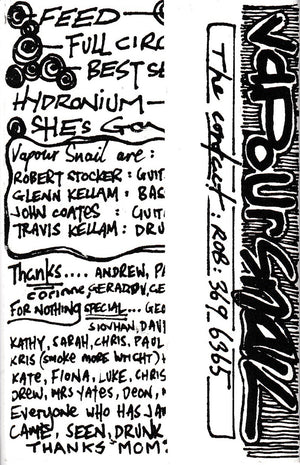 FEED
FULL CIRC
BEST SE
HYDRONIUM
SHE'S GON
Vapour Snail are:
ROBERT STOCKER: GUIT
GLENN KELLAM: BAS
JOHN COATES: GUIT
TRAVIS KELLAM: DRU
Thanks.... ANDREW, PA
corinne GERARDV, GE
FOR NOTHING SPECIAL... GEO
SIOVHAN, DAVI
KATHY, SARAH, CHRIS, PAUL
KRIS (SMOKE MORE WRIGHT) +
KATE, FIONA, LUKE, CHRIS
DREW, MRS YATES, DEON,
Everyone WHO HAS JAM
CAME, SEEN, DRUNK
THANKS MOM
The contact: ROB: 369 6365
VAPOUR SNAIL